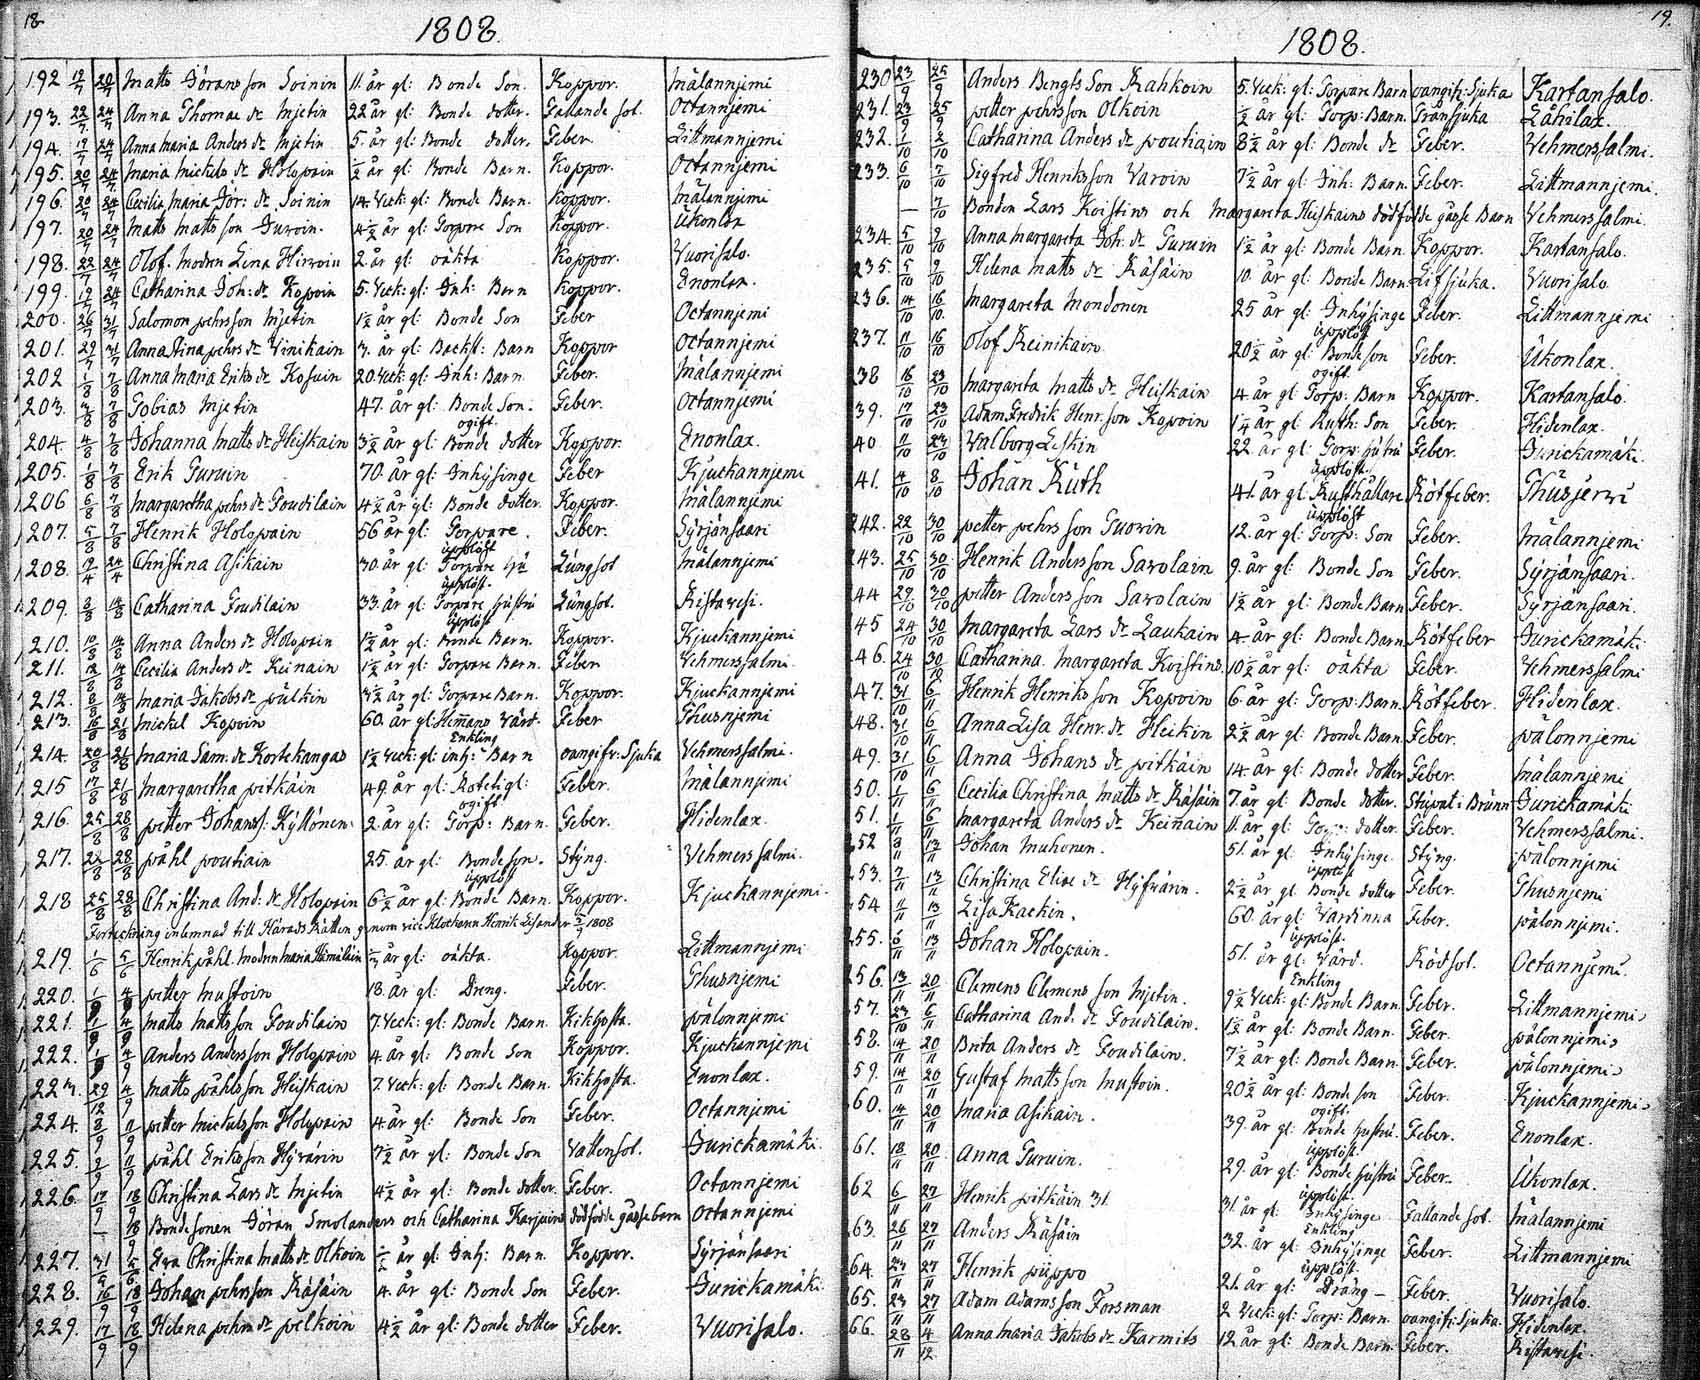 18
1808.
192 19/7 20/7 Matts Göransson Soinin 11. år gl: Bonde Son. Koppor. Mälannjemi
193. 22/7 24/7 Anna Thomae dr Mjetin 22 år gl: Bonde dotter. Fallande sot. Octannjemi
194. 19/7 24/7 Anna Maria Anders dr Mjetin 5. år gl: Bonde dotter. Feber. Littmannjemi
195. 20/7 24/7 Maria Mickels dr Holopain ½ år gl: Bonde Barn. Koppor. Octannjemi
196. 20/7 24/7 Cecilia Maria Gör: dr Soinin 14. Veck: gl: Bonde Barn. Koppor. Mälannjemi
197. 20/7 24/7 Matts Mattsson Turoin. 4½ år gl: Torpare Son Koppor. Ukonlax
198. 22/7 24/7 Olof. modren Lena Hirvoin 2. år gl: oäkta Koppor. Vuorisalo.
199. 19/7 24/7 Catharina Joh: dr Kopoin 5. Veck: gl: Inh: Barn Koppor. Enonlax.
200. 26/7 31/7 Salomon pehrsson Mjetin 1½ år gl: Bonde Son Feber Octannjemi
201. 29/7 31/7 Anna Stina pehrs dr Vinikain 3. år gl: Backst: Barn Koppor Octannjemi
202 1/8 7/8 Anna Maria Eriks dr Kosuin 20. Veck: gl: Inh: Barn Feber. Mälannjemi
203. 3/8 7/8 Tobias Mjetin 47. år gl: Bonde Son. ogift. Feber. Octannjemi
204. 4/8 7/8 Johanna Matts dr Heiskain 3½ år gl: Bonde dotter Koppor. Enonlax.
205. 1/8 7/8 Erik Turuin 70. år gl: Inhysinge Feber Kjuckannjemi
206 6/8 7/8 Margaretha pehrs dr Toudilain 4½ år gl: Bonde dotter. Koppor. Mälannjemi
207. 5/8 7/8 Henrik Holopain 56 år gl: Torpare. upplöst Feber. Syrjänsaari
208. 19/4 24/4 Christina Asikain 30. år gl: Torpare hu upplöst. Lungsot Mälannjemi
209. 8/8 14/8 Catharina Toudilain 33. år gl: Torpare hustru upplöst Lungsot. Ristavesi.
210. 10/8 14/8 Anna Anders dr Holopain 1½ år gl: Bonde Barn. Koppor. Kjuckannjemi
211. 12/8 14/8 Cecilia Anders dr Keinain 1½ år gl: Torpare Barn. Feber Vehmerssalmi.
212. 8/8 14/8 Maria Jakobs dr pulkin 3½ år gl: Torpare Barn. Koppor. Kjuckannjemi
213. 16/8 21/8 Mickel Kopoin 60. år gl: Hemans Värd. Enkling Feber Thusnjemi
214. 20/8 21/8 Maria Sam: dr Kortekangas 1½ Veck: gl: inh: Barn oangifv: Sjuka Vehmerssalmi.
215 17/8 21/8 Margaretha pitkäin 49. år gl: Rotehigl: ogift Feber. Mälannjemi
216. 25/8 28/8 petter Johans: Kyllönen: 2. år gl: Torp: Barn. Feber. Hidenlax.
217. 22/8 28/8 påhl poutiain 25. år gl: Bonde son. upplöst Styng. Vehmerssalmi.
218 25/8 28/8 Christina And: dr Holopain 6½ år gl: Bonde Barn. Koppor. Kjuckannjemi.
Förteckning inlemnad till Härads Rätten genom vice Klockaren Henrik Lisander 1808
219. 1/6 5/6 Henrik påhl. modren Maria Hämäläin år gl: oäkta. Koppor. Littmannjemi
220. 1/9 4/9 petter Mustoin 18. år gl: Dreng. Feber. Thusnjemi
221. 1/9 4/9 Matts Mattsson Toudilain 7. Veck: gl: Bonde Barn. Kikhosta. pälonnjemi
222. 1/9 4/9 Anders Andersson Holopain 4. år gl: Bonde Son Koppor. Kjuckannjemi
223. 29/12 4/9 Matts påhlsson Heiskain 7. Veck: gl: Bonde Barn. Kikhosta. Enonlax.
224. 8/9 11/9 petter Mickelsson Holopain 4 år gl: Bonde Son Feber. Octannjemi
225. 9/9 11/9 påhl Eriksson Hyvärin 7½ år gl: Bonde Son Vattensot. Jurickamäki.
226. 17/9 18/9 Christina Lars dr Mjetin 4½ år gl: Bonde dotter. Feber. Octannjemi
— 18/9 Bondesonen Göran Smolanders och Catharina Karjuins dödfödde gåsse barn Octannjemi
227. Eva Christina Matts dr Olkoin ½ år gl: Inh: Barn. Koppor. Syrjänsaari
228. 16/9 18/9 Johan pehrsson Räsäin 4. år gl: Bonde Son Feber. Jurickamäki.
229. 17/9 18/9 Helena pehrs dr pelkoin 4½ år gl: Bonde dotter Feber. Vuorisalo.
19.
1808.
230 23/9 25/9 Anders Bengts Son Kahkoin 5. Veck: gl: Torpare Barn oangifv: Sjuka Kartansalo.
231. 23/9 25/9 petter pehrsson Olkoin ½ år gl: Torp: Barn. Trånsjuka Lähilax.
232. 1/10 2/10 Catharina Anders dr poutiain 8½ år gl: Bonde dr Feber. Vehmerssalmi.
233. 6/10 7/10 Sigfred Henriksson Varoin 7½ år gl: Inh: Barn. Feber. Littmannjemi.
— 7/10 Bonden Lars Koistins och Margareta Heiskains dödfödde gåsse Barn Vehmerssalmi.
234. 5/10 9/10 Anna Margareta Joh: dr Turuin 1½ år gl: Bonde Barn. Koppor. Kartansalo.
235. 5/10 9/10 Helena Matts dr Räsäin 10. år gl: Bonde Barn. Lifsjuka. Vuorisalo
236. 14/10 16/10 Margareta Mondonen 25 år gl: Inhysinge upplöst Feber. Littmannjemi
237. 11/10 16/10 Olof Reinikain 20½ år gl: Bondeson ogift. Feber. Ukonlax.
238 16/10 23/10 Margareta Matts dr Heiskain 4 år gl: Torp: Barn Koppor. Kartansalo.
39. 17/10 23/10 Adam Fredrik Henr: son Kopoin 1¼ år gl: Rusth: Son Feber. Hidenlax.
40 11/10 23/10 Valborg Leskin 22. år gl: Torp: hustru upplöst. Feber. Jurickamäki.
41. 4/10 8/10 Johan Ruth 41. år gl: Rusthållare upplöst Rötfeber. Thusjerwi
242. 22/10 30/10 petter pehrsson Tuovin 12. år gl: Torp: Son Feber. Mälannjemi
243. 25/10 30/10 Henrik Andersson Savolain 9. år gl: Bonde Son Feber. Syrjänsaari.
44 29/10 30/10 petter Andersson Savolain 1½ år gl: Bonde Barn Feber. Syrjänsaari.
45 24/10 30/10 Margareta Lars dr Laukain 4. år gl: Bonde Barn. Rötfeber Jurickamäki
46. 24/10 30/10 Catharina Margareta Koistins. 10½ år gl: oäkta Feber. Vehmerssalmi
47. 31/10 6/11 Henrik Henriksson Kopoin 6. år gl: Torp: Barn. Rötfeber. Hidenlax.
48. 31/10 6/11 Anna Lisa Henr. dr Heikin 2½ år gl: Bonde Barn. Feber. pälonnjemi
49. 31/10 6/11 Anna Johans dr pitkäin 14. år gl: Bonde dotter Feber. Mälannjemi
50. 1/11 6/11 Cecilia Christina Matts dr Räsäin 7. år gl: Bonde dotter. Stupat i Brunn Jurickamäki
51. 1/11 6/11 Margareta Anders dr Keinain 11. år gl: Torp: dotter. Feber. Vehmerssalmi.
252 8/11 13/11 Johan Muhonen. 51. år gl: Inhysinge upplöst Styng. pälonnjemi
253. 7/11 13/11 Christina Eliae dr Hyfvärin. 2½ år gl: Bonde dotter Feber. Thusnjemi
54 11/11 13/11 Lisa Kaekin. 60. år gl: Värdinna upplöst. Feber. pälonnjemi.
255. 6/11 13/11 Johan Holopain. 51. år gl: Värd. Enkling Rödsot. Octannjemi.
256. 13/11 20/11 Clemens Clemensson Mjetin. 9½ Veck: gl: Bonde Barn. Feber. Littmannjemi
57. 23/10 6/11 Catharina And: dr Toudilain. 1½ år gl: Bonde Barn. Feber. pälonnjemi
58. 14/11 20/11 Brita Anders dr Toudilain. 7½ år gl: Bonde Barn. Feber. pälonnjemi
59. 14/11 20/11 Gustaf Mattsson Mustoin. 20½ år gl: Bonde son ogift. Feber. Kjuckannjemi
60. 14/11 20/11 Maria Asikain. 39. år gl: Bonde hustru. upplöst. Feber. Enonlax.
61. 18/11 20/11 Anna Turuin. 29. år gl: Bonde hustru upplöst. Feber. Ukonlax.
62 6/11 27/11 Henrik pitkäin 31. 31. år gl: Inhysinge Enkling Fallande sot. Mälannjemi
63. 26/11 27/11 Anders Räsäin 32. år gl: Inhysinge upplöst. Feber. Littmannjemi
64. 23/11 27/11 Henrik puppo 21. år gl: Dräng — Feber. Vuorisalo.
65. 23/11 27/11 Adam Adamsson Forsman 2 Veck: gl: Torp: Barn. oangifv: Sjuka. Hidenlax.
66. 28/11 4/12 Anna Maria Jakobs dr Karmits 12 år gl: Bonde Barn. Feber. Ristavesi.